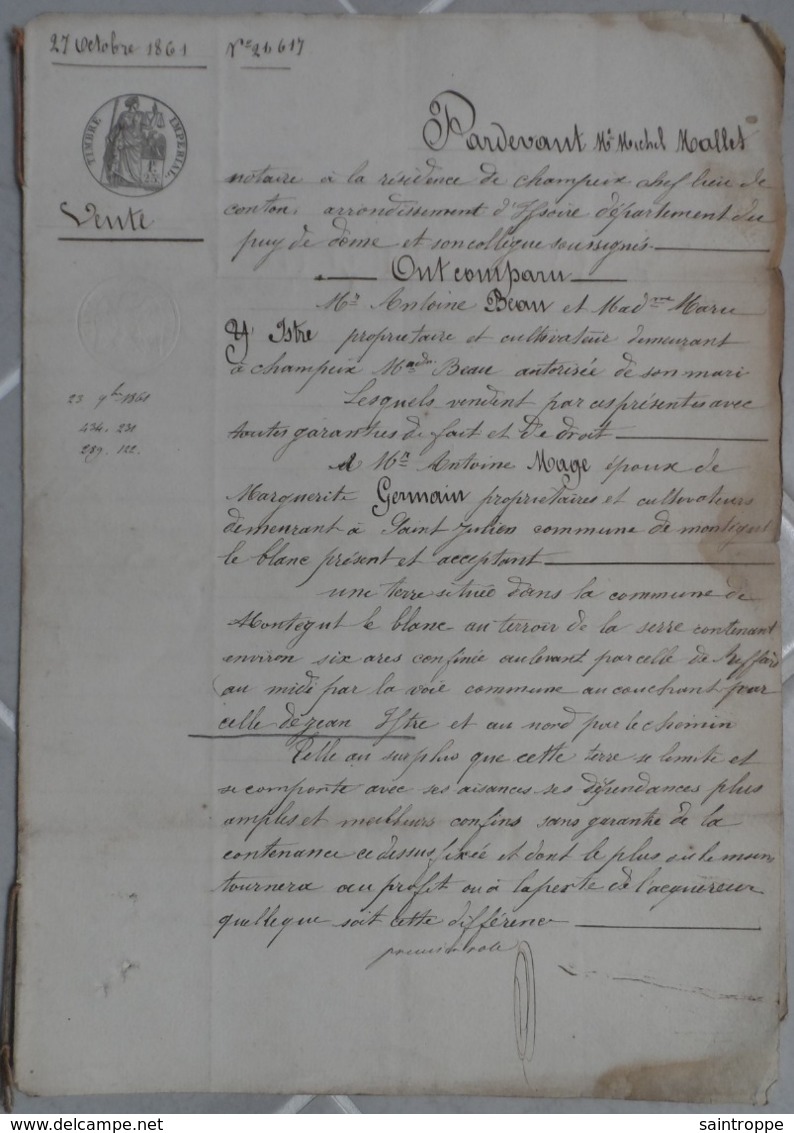 27 Octobre 1861
N° 21,617
TIMBRE IMPÉRIAL
Vente
Pardevant Me Michel Mallet
notaire à la résidence de champeix chef lieu de
conton, arrondissement d'Issoire département du
puy de dôme et son collègue soussignés
Ont comparu
Mr Antoine Beau et Madme Marie
Istre propriétaire et cultivateur demeurant
à champeix Made Beau autorisée de son mari
Lesquels vendent par ces présentes avec
toutes garanties de fait et de droit
à Mr Antoine Mage époux de
Marguerite Germain propriétaires et cultivateurs
demeurant à Saint Julien commune de montégut
le blanc présent et acceptant
une terre située dans la commune de
Montégut le blanc au terroir de la serre contenant
environ six ares confinée au levant parcelle de
au midi par la voie commune au couchant par
celle de jean Istre et au nord par le chemin
Telle au surplus que cette terre se limite et
se comporte avec ses aisances ses dépendances plus
amples et meilleurs confins sans garantie de la
contenance ci dessus fixée et dont le plus ou le moins
tournera au profit ou à la perte de l'acquéreur
quelleque soit cette différence
premier role
23 9bre 1861
434. 231
289. 122
saintroppe